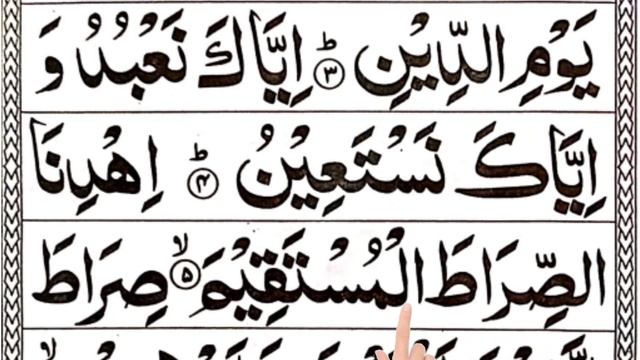 يَوْمِ الدِّيْنِ ؕ۳ اِيَّاكَ نَعْبُدُ وَ
اِيَّاكَ نَسْتَعِيْنُ ؕ۴ اِهْدِنَا
الصِّرَاطَ الْمُسْتَقِيْمَ ۙ۵ صِرَاطَ